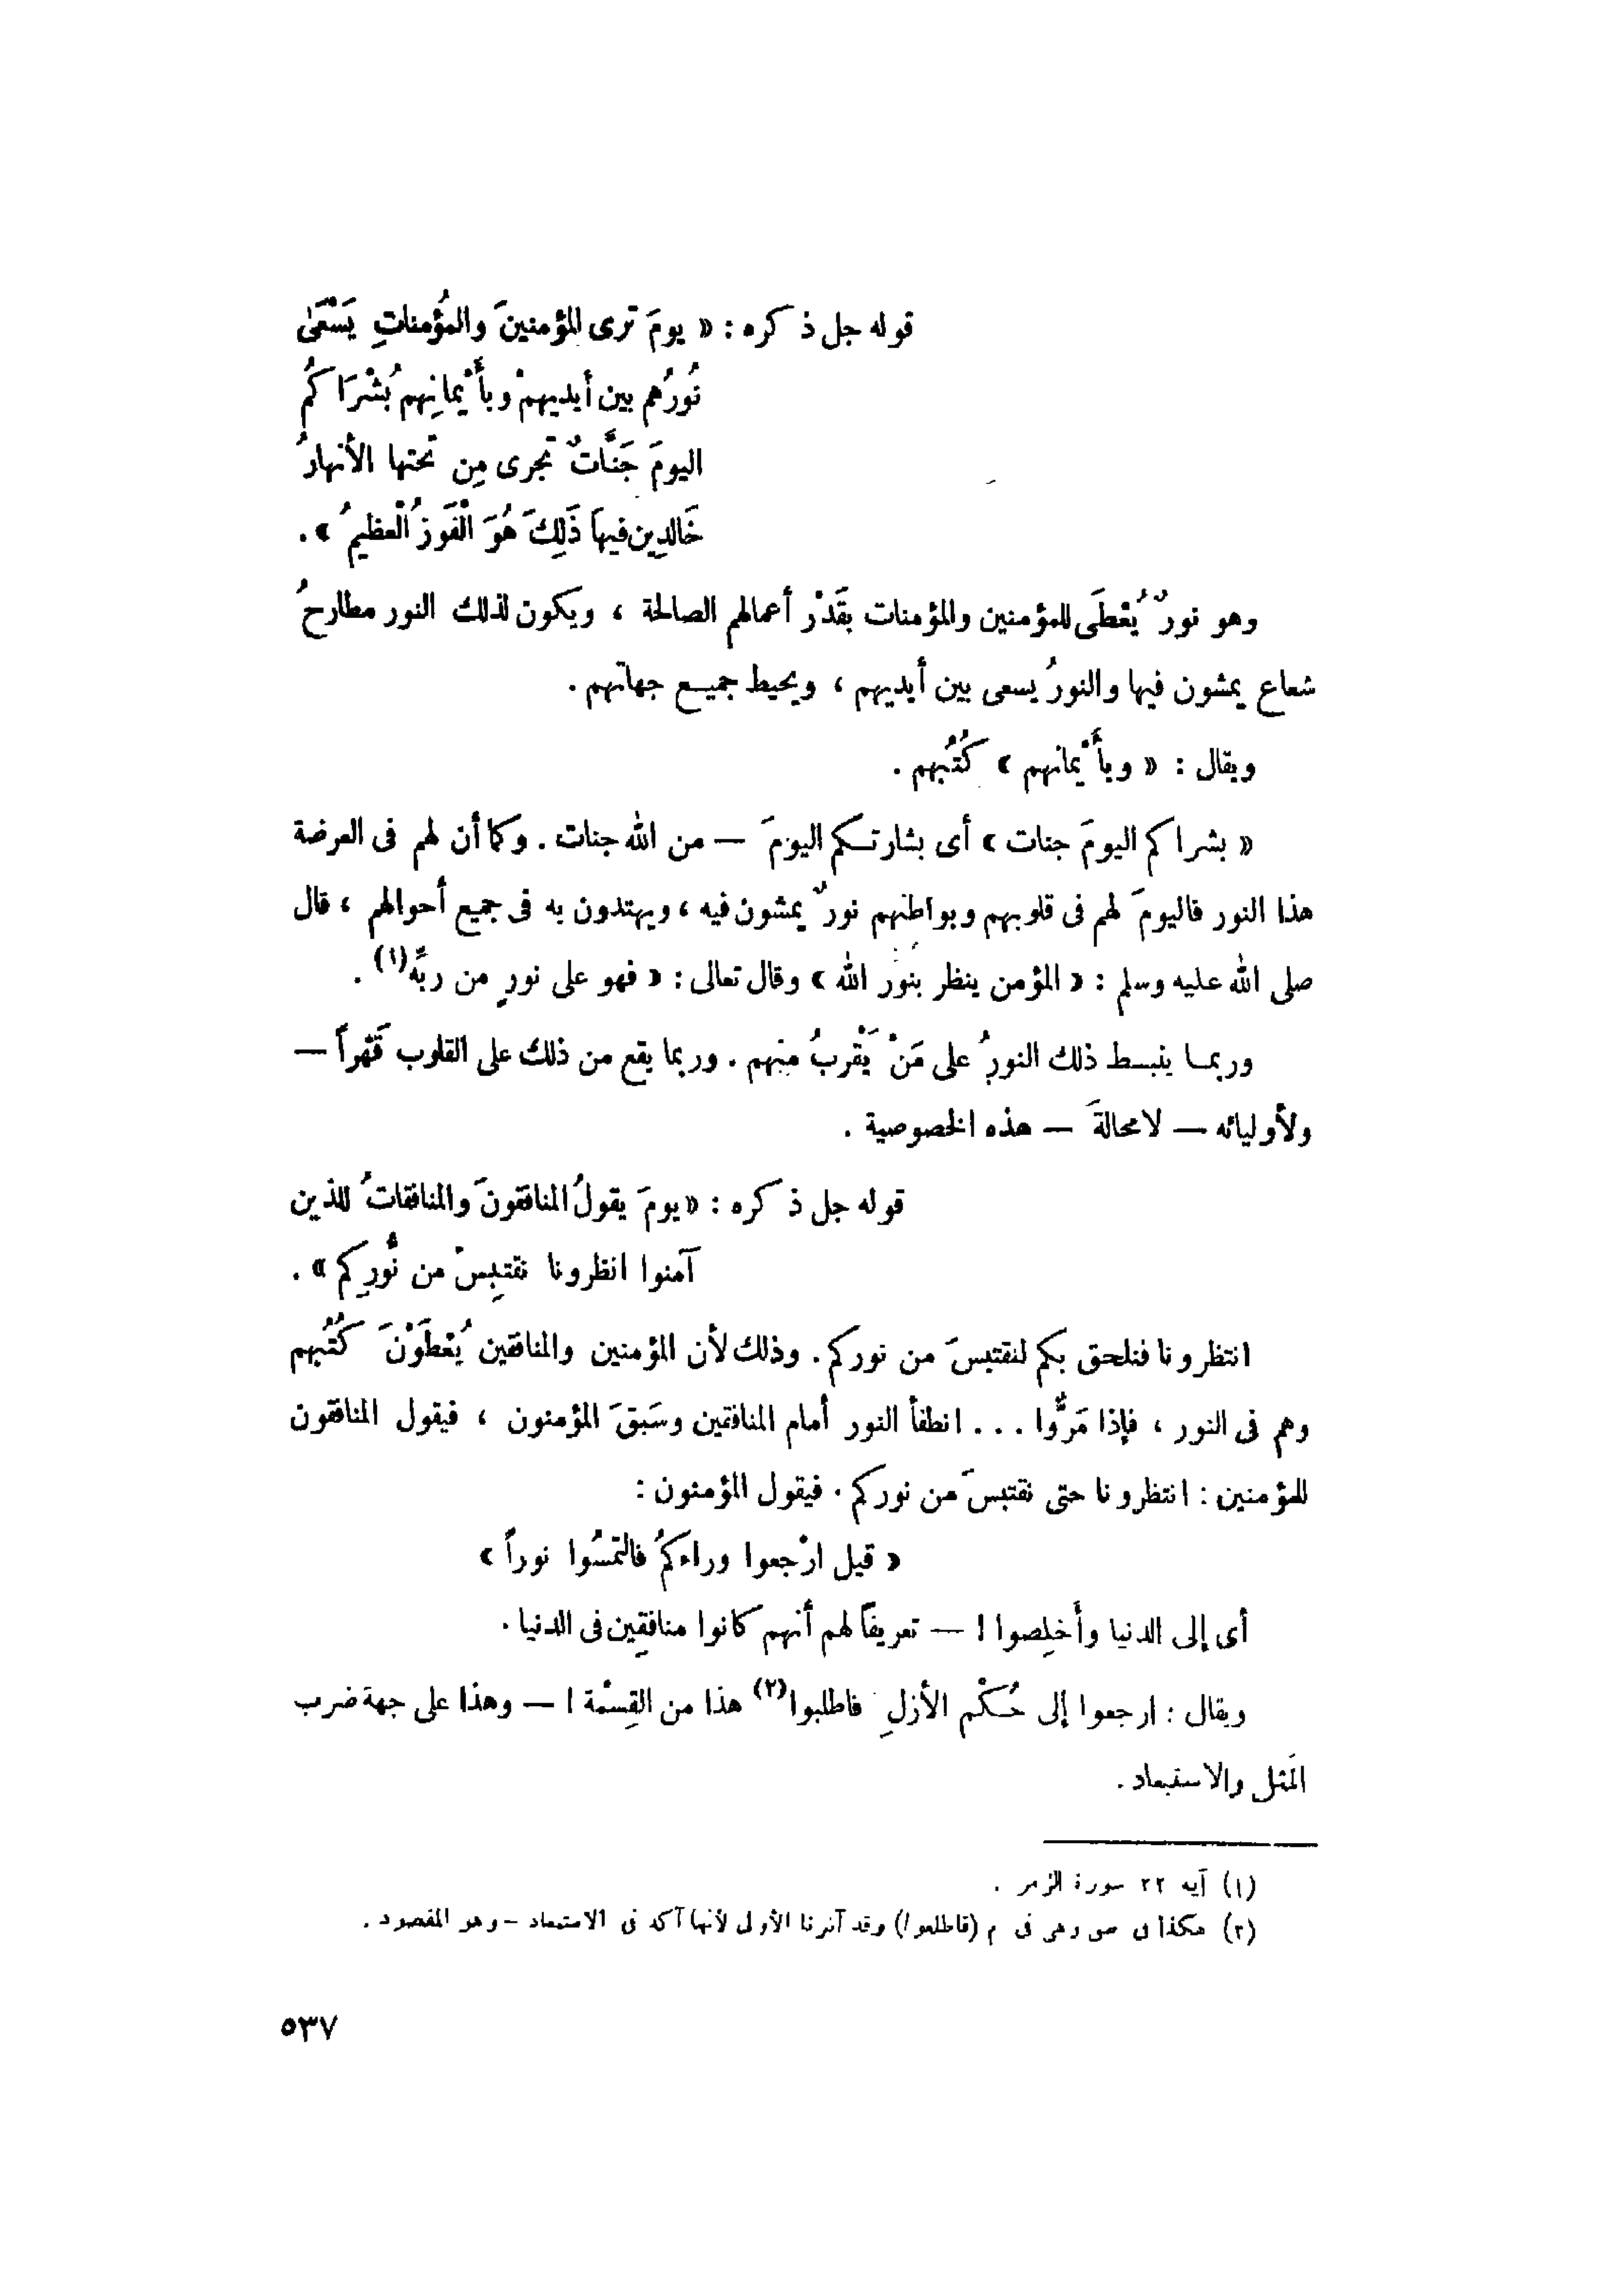 قوله جل ذكره : « يومَ ترى المؤمنينَ والمؤُمناتِ يَسْعَىٰ
نُورُهم بين أيديهمْ وبأَيْمانِهم بُشْرَاكُم
اليومَ جَنَّاتٌ تجرى مِن تحتها الأنهارُ
خَالدِين فيهاَ ذَلِكَ هُوَ الْفَوزُ الْعظيمُ » .
وهو نورٌ يُعْطَى للمؤمنين والمؤمنات بقَدْر أعمالهم الصالحة ، ويكون لذلك النور مطارحُ
شعاع يمشون فيها والنورُ يسعى بين أيديهم ، ويحيط جميع جهاتهم .
ويقال : « وبأَيْمانهم » كُتُبهم .
« بشراكم اليومَ جنات » أى بشارتكم اليومَ — من الله جنات . وكما أن لهم فى العرضة
هذا النور فاليومَ لهم فى قلوبهم وبواطنهم نورٌ يمشون فيه ، ويهتدون به فى جميع أحوالهم ، قال
صلى الله عليه وسلم : « المؤمن ينظر بنور الله » وقال تعالى : « فهو على نورٍ من ربِّه(١) .
وربما ينبسط ذلك النورُ على مَنْ يَقْربُ منهم . وربما يقع من ذلك على القلوب قَهْراً —
ولأوليائه — لا محالةَ — هذه الخصوصية .
قوله جل ذكره : « يومَ يقولُ المنافقونَ والمنافقاتُ للذين
آمنوا انظرونا نقتبِسْ من نُّورِكم » .
انتظرونا فنلحق بكم لنقتبسَ من نوركم . وذلك لأن المؤمنين والمنافقين يُعْطَوْنَ كُتُبهم
وهم فى النور ، فإذا مَرُّوا . . . انطفأ النور أمام المنافقين وسَبقَ المؤمنون ، فيقول المنافقون
للمؤمنين : انتظرونا حتى نقتبسَ من نوركم . فيقول المؤمنون :
« قيل ارْجعوا وراءكمُ فالتمسُوا نوراً »
أى إلى الدنيا وأَخلِصوا ! — تعريفاً لهم أنهم كانوا منافقِين فى الدنيا .
ويقال : ارجعوا إلى حُكْم الأزلِ فاطلبوا(٢) هذا من القِسْمة ! — وهذا على جهة ضرب
المَثل والاستبعاد .
(١) آية ٢٢ سورة الزمر .
(٢) هكذا فى ص وهى فى م (فاطلعوا) وقد آثرنا الأولى لأنها آكد فى الاستبعاد – وهو المقصود .
٥٣٧